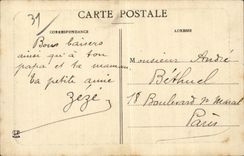 31
CARTE POSTALE
CORRESPONDANCE
ADRESSE
Bons baisers
ainsi qu'à ton
papa et ta maman.
Ta petite amie
Zézé
Monsieur André
Béthuel
Boulevard
Paris